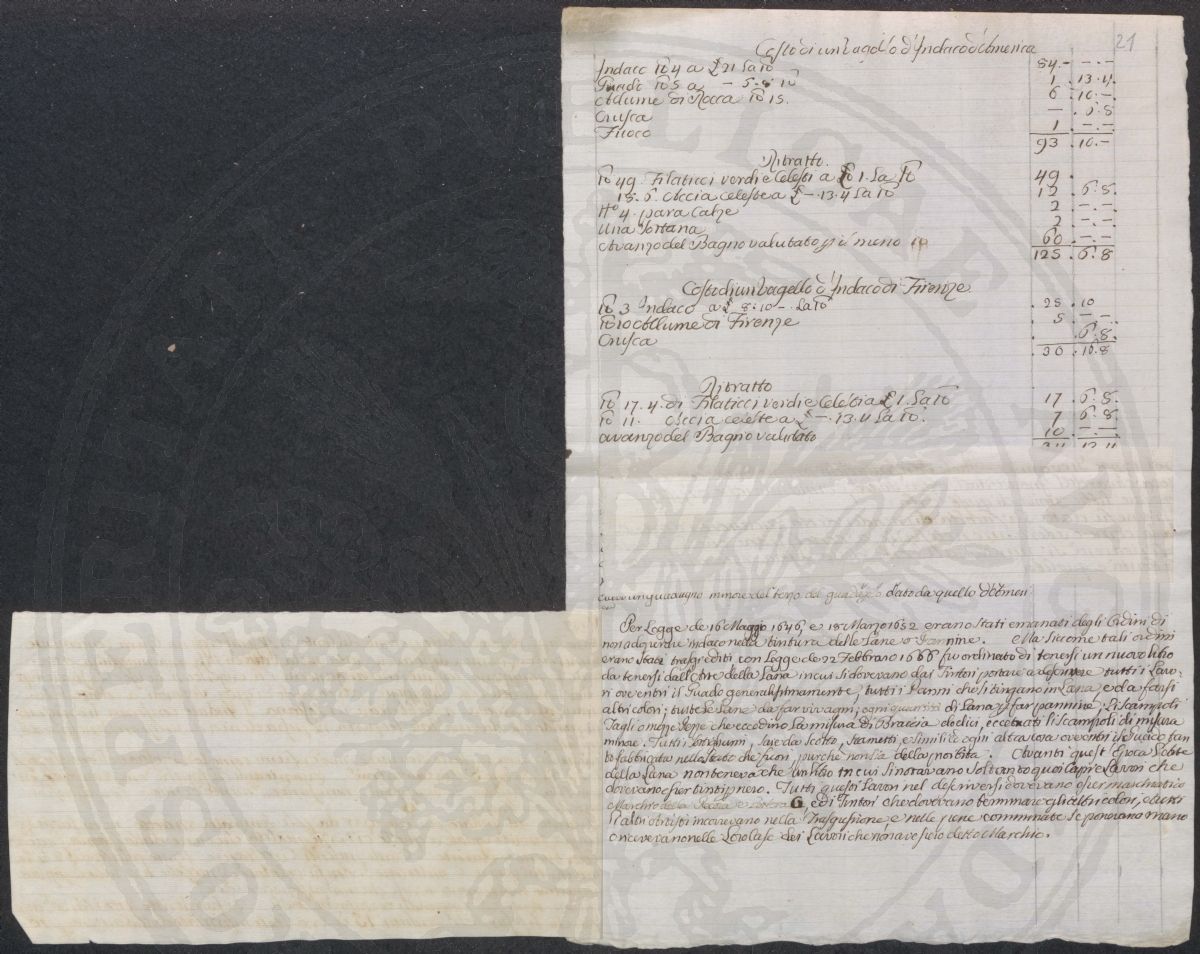 21
Costo di un Vagello d'Indaco d'America
Indaco ℔ 4 a £ 21 la ℔ 84.- -.-
Guado ℔ 5 a -. 6. 8 ℔ 1. 13.4.
Allume di Rocca ℔ 15. 6. 10.-
Crusca -. 6.8
Fuoco 1. -.-
93. 10.-
Ritratto.
℔ 49. Filaticci verdi e Celesti a £ 1. La ℔ 49.
18. 6. Accia celeste a £ -. 13. 4 La ℔ 12. 6. 8.
N° 4. para Calze 2. -.-
Una 2. -.-
Avanzo del Bagno valutato p il meno 60. -.-
125. 6. 8
Costo di un vagello d'Indaco di Firenze
℔ 3 Indaco a £ 8. 10 -. La ℔ 25. 10
℔ 10 Allume di Firenze 5. -.-
Crusca 6. 8.
30. 16.8
Ritratto
℔ 17. 4. di Filaticci verdi e Celesti a £ 1. La ℔ 17. 6. 8.
℔ 11. Accia celeste a £ -. 13. 4 La ℔. 7. 6. 8
avanzo del Bagno valutato 10. -.-
un guadagno minore del terzo del dato da quello d'Ameri
Per Legge de 16 Maggio 1646 e 18 Marzo 1652 erano stati emanati degli Ordini di
non adoprare indaco nella tintura delle Lane o Pannine. Ma siccome tali ordini
erano stati trasgrediti con Legge de 22 Febbraro 1666 fu ordinato di tenersi un nuovo libro
da tenersi dall'Arte della Lana in cui si dovevano dai Tintori portare a descrivere tutti i Lavo-
ri ove entri il Guado generalissimamente, tutti i Panni che si tingano in Lana, e da farsi
altri colori; tutte le Lane da far vivagni, ogni quantità di Lana p far pannine, Li scampoli
Tagli o mezze Pezze che eccedino La misura di Braccia dodici, eccettuati li scampoli di misura
minore. Tutti, Saje da Scotto, Stametti, e simili e ogni altra cosa ove entri il Guado tan
to fabbricata nello stato che fuori, purchè non sia della proibita. Avanti quest'Epoca L'Arte
della Lana non teneva che un libro in cui si notavano soltanto quei Capi e Lavori che
dovevano esser tinti p nero. Tutti questi Lavori nel descriversi dovevano esser marchiati co
Marchio della G, e di Tintori che dovevano e gli altri colori, e tutti
li altri Artisti incorrevano nella Trasgressione e nelle pene comminate se ponevano mano
o ricevevano nelle Loro Case dei Lavori che non avessero detto Marchio.